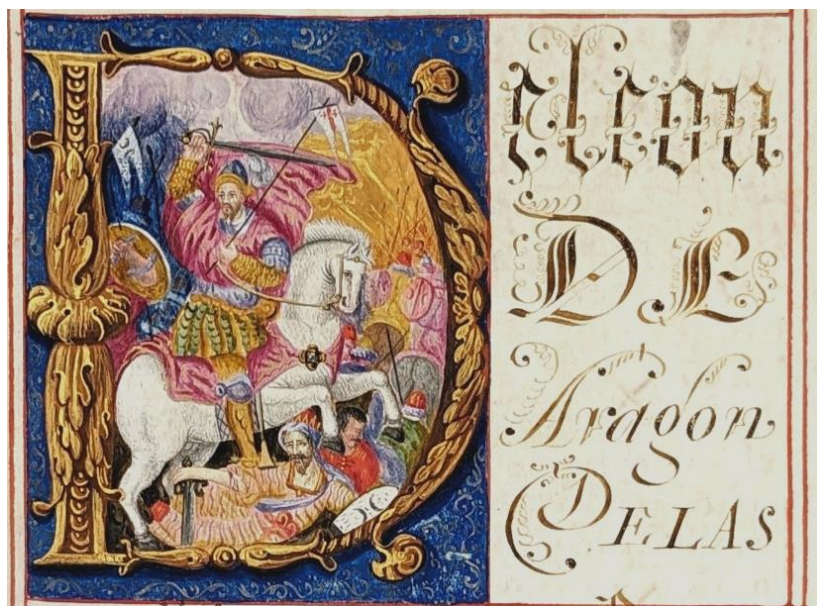 DeLeon
DE
Aragon
DELAS